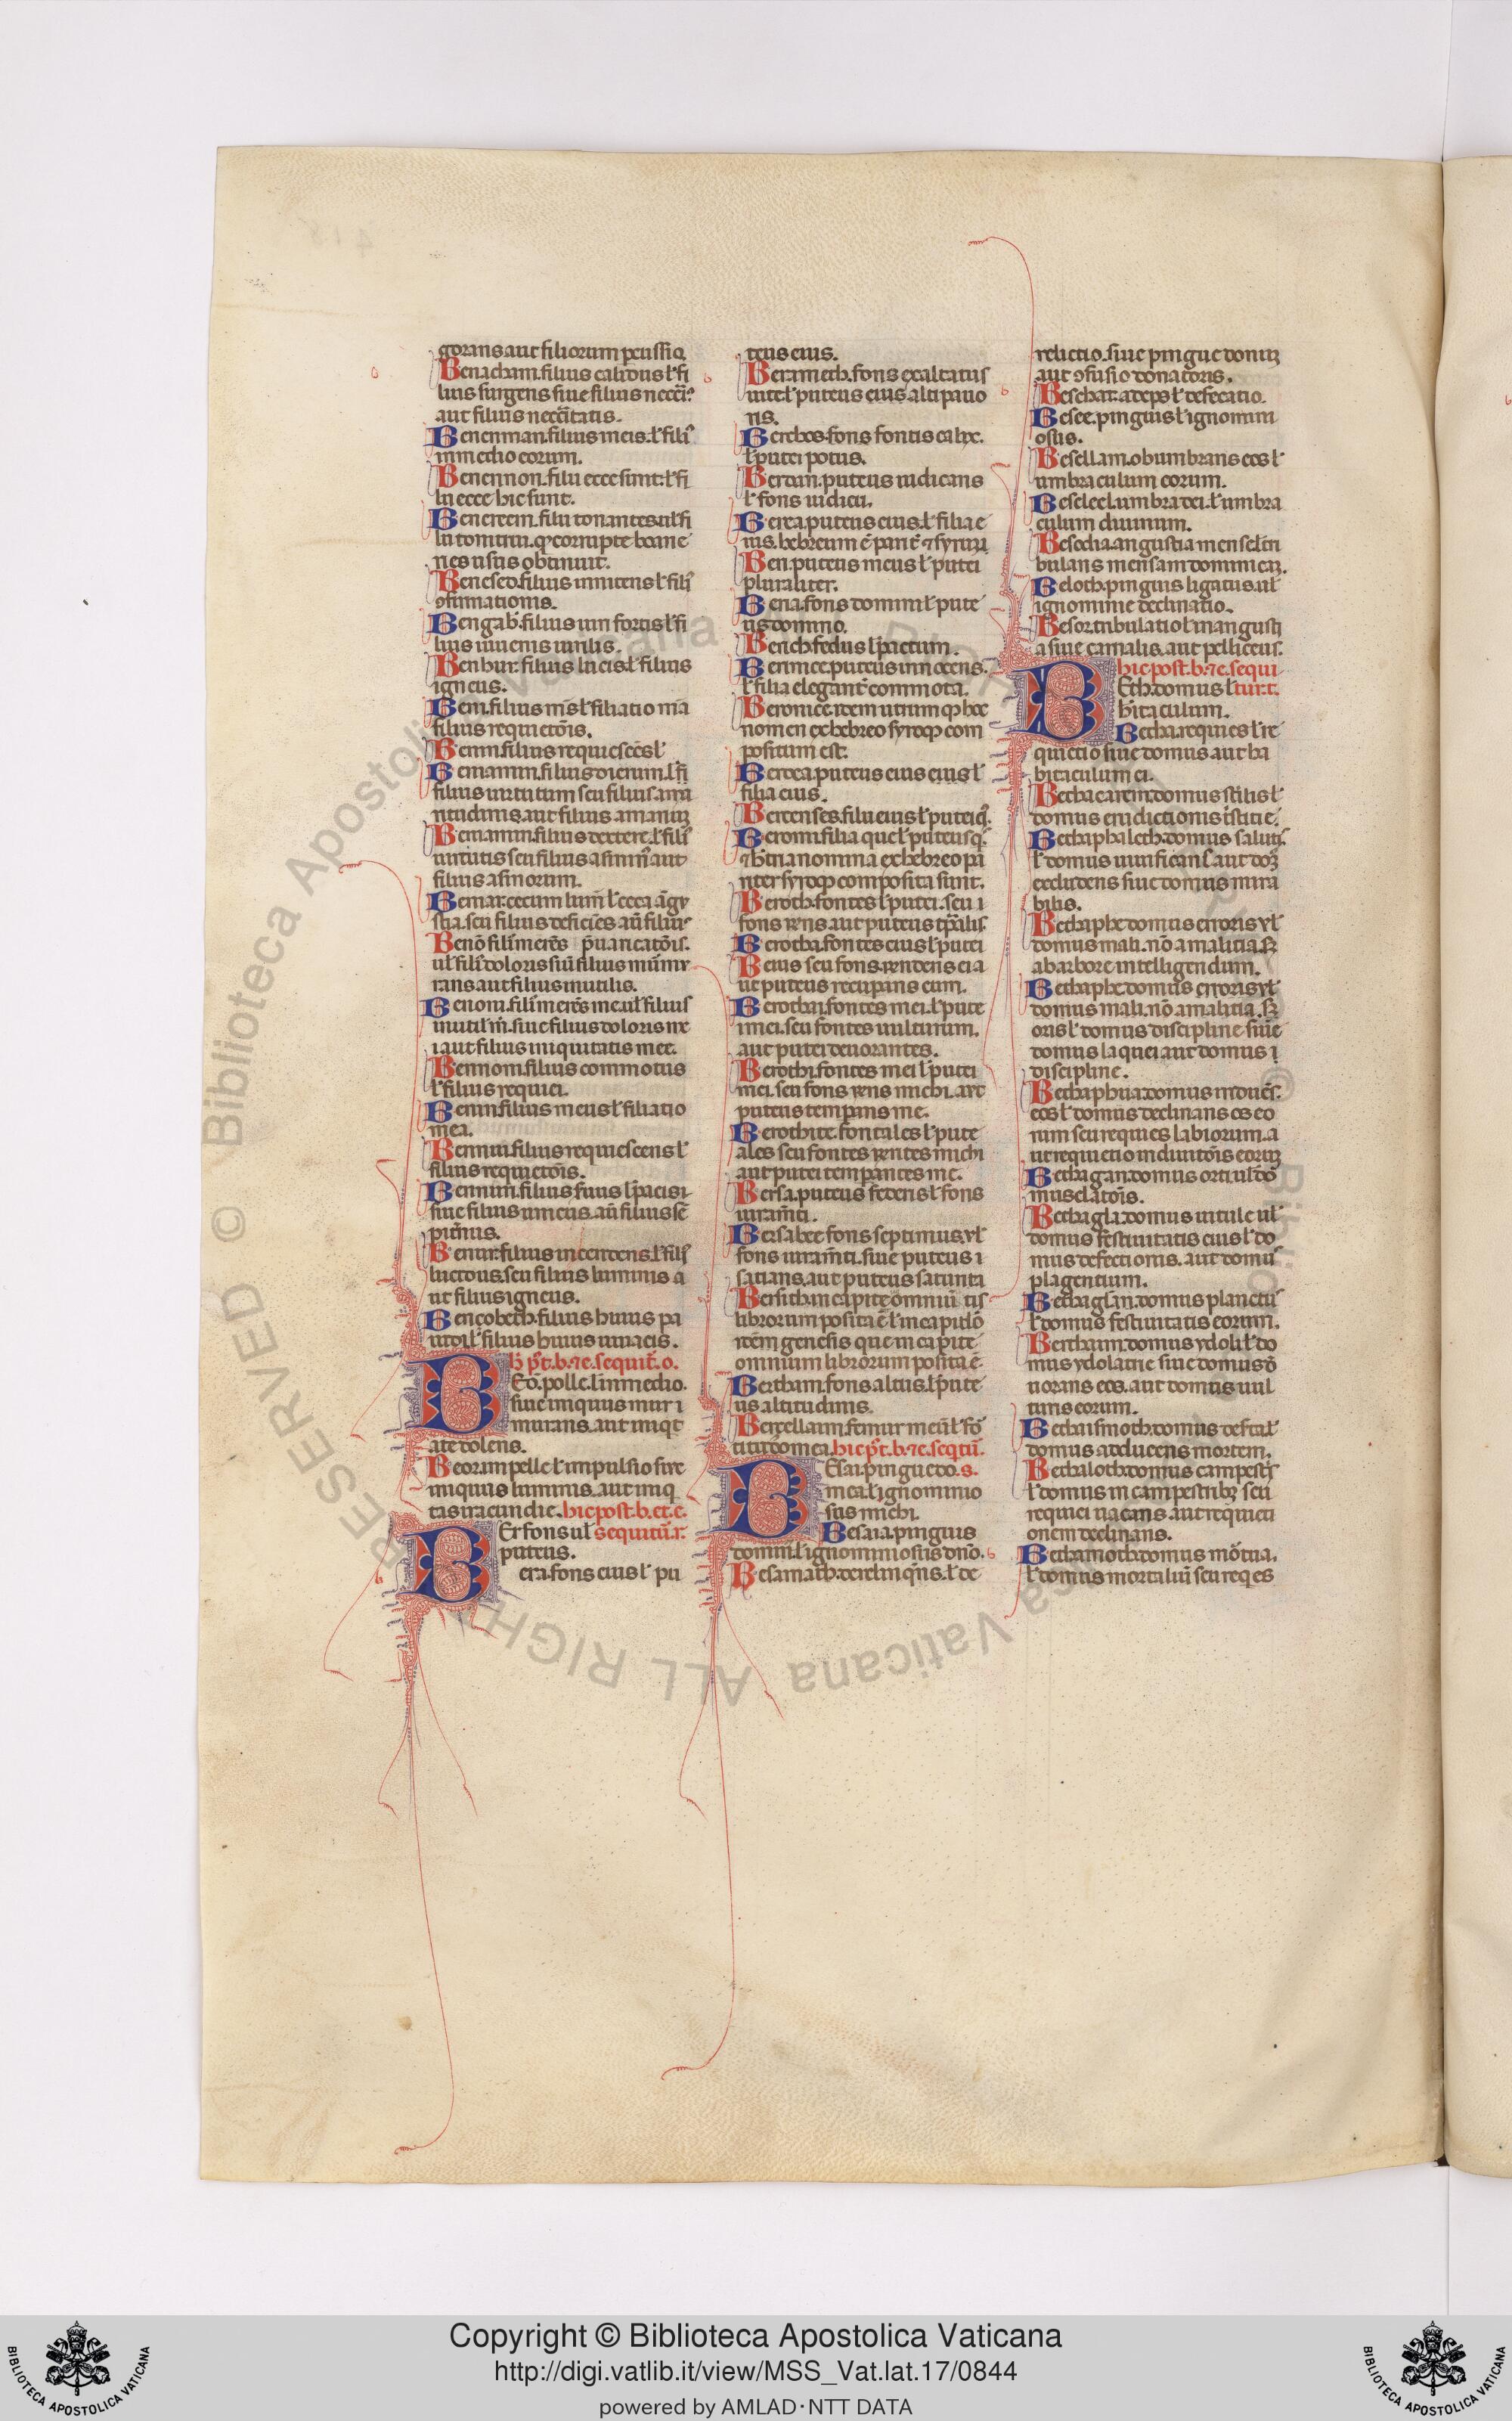 gorans aut filiorum pcussio.
Benacham. filius calidus ł fi
lius surgens siue filius necci᷒
aut filius neccitatis.
Benenman. filius meis. ł fili᷒
in medio eorum.
Benennon. filii ecce sunt. ł fi
lii ecce hic sunt.
Benereem. filii tonantes. ul fi
lii tonitrui. q̕ corrupte boane
rges usus obtinuit.
Benesed. filius innitens ł fili᷒
ꝯfirmationis.
Bengab̕. filius uiri fortis ł fi
lius iuuenis uirilis.
Benhur. filius lucis. ł filius
igneus.
Beni. filius m̕s ł filiatio m̄a
filius requietōis.
Benin. filius requiescēs ł
Beniamin. filius dierum. ł fi
filius uirtutum seu filius ama
ritudinis. aut filius amarus
Beniamin. filius dextere. ł fili᷒
uirtutis seu filius asinini᷒ aut
filius asinorum.
Benō. fili᷒ merēs
ul fili᷒ doloris siū filius mūmu
rans aut filius inutilis.
Benoni. fili᷒ merēs me. ul filius
inutil᷒ m̕. siue filius doloris me
i aut filius iniquitatis mee.
Bennom. filius commotus
ł filius requiei.
Benin. filius meus ł filiatio
mea.
Bennim. filius requiescens ł
filius requietōis.
Benur. filius incendens. ł fili᷒
luctous. seu filius luminis a
ut filius igneus.
Bencobeth. filius huius pa
uidi. ł filius huius uiuacis.
h̕ p̕t. b. ⁊e. sequit̕. o.
Eō. polle. ł in medio.
siue iniquus mur i
murans. aut iniqt
ate dolens.
Beor. in pelle ł impulsio siue
iniquus luminis. aut iniq
tas iracundie. hic post. b. et. e.
Er fons ul sequitū. r.
puteus.
era. fons eius ł pu
teus eius.
Berameth. fons exaltatus
uite. ł puteus eius alti pauo
ris.
Berebes. fons fontis calix.
ł putei potus.
Berdan. puteus iudicans
ł fons iudicii.
Berea. puteus eius. ł filia e
ius. hebreum ē parit̕ ⁊ syrum
Beri. puteus meus ł putei
pluraliter.
Beria. fons domini ł pute
us domino.
Berich. fedus ł pactum.
Berinice. puteus innocens.
ł filia eleganṫ commota.
Beronice. item utrum q̕ hoc
nomen ex hebreo syroq̕ com
positum est.
Beroea. puteus eius eius ł
filia eius.
Beroenses. filii eius ł putei q̕.
Beromi. filia que ł puteus q̕.
inter syroq̕ composita sunt.
Beroth. fontes ł putei. seu i
Berotha. fontes eius ł putei
Beius seu fons rendens ei a
ut puteus recupans eum.
Berothai. fontes mei ł pute
i mei. seu fontes uulturum.
aut putei deuorantes.
Berothi. fontes mei ł putei
mei. seu fons rens michi. aut
puteus tempans me.
Berothite. fontales ł pute
ales seu fontes rentes michi
aut putei tempantes me.
Bersa. puteus fetens ł fons
iuram̄ti.
Bersabee fons septimus. ul
fons iuram̄ti. siue puteus i
satians. aut puteus satiriti
Bersith. in capite omniū tis
librorum posita ē ł in capitlō
itēm genesis que in capite
omnium librorum posita ē.
Bertham. fons altus. ł pute
us altitudinis.
Berzellam. femur meū ł fō
titudo mea. hic p̕t. b. ⁊e. seqtū.
Esai. pinguedo. s.
mea. ł ignominio
sus michi.
Besaia. pinguis
domini. ł ignominiosus dn̄o.
Besamath. derelinq̄ns. ł de
relictio. siue pingue domū
aut ꝯfusio donatoris.
Besebat. adeps ł defecatio.
Besee. pinguis ł ignomini
osus.
Besellam. obumbrans eos ł
umbraculum eorum.
Beseleel. umbra dei. ł umbra
culum diuinum.
Besodia. angustia mense. ł tri
bulans mensam dominicā.
Beloth. pinguis ligatus. ul
ignominie declinatio.
Besor. tribulatio ł in angusti
a siue carnalis. aut pelliceus.
hic post. b. ⁊e. sequi
Eth. domus ł tur. t.
h̕itaculum.
Betha. requies ł re
quietio siue domus aut ha
bitaculum ei.
Bethacarem. domus st̄ilis ł
domus eruditionis
Bethaphaleth. domus saluti᷒.
excludens siue domus mira
bilis.
Bethaphe. domus erroris. ul
domus mali. nō a malitia. s̕
ab arbore intelligendum.
Bethaphe. domus erroris. ul
domus mali. nō a malitia. s̕
oris ł domus discipline siue
domus laquei aut domus i
discipline.
Bethaphua. domus
eos ł domus declinans os eo
rum seu requies labiorum. a
ut requietio induitōis eorum
Bethagan. domus orti. ul dō
Bethagla. domus uitule ul
domus festiuitatis eius ł do
mus defectionis. aut domu᷒
plagentium.
Bethaglan. domus planctū
ł domus festiuitatis eorum.
Bethann. domus ydoli ł do
mus ydolatrie siue domus ō
norans eos. aut domus uul
tims eorum.
domus adducens mortem.
Bethaloth. domus campest̕s
ł domus in campestribus seu
requiei uacans. aut requieti
onem declinans.
Bethamoth. domus mōtua.
ł domus mortaliū seu req es
Copyright © Biblioteca Apostolica Vaticana
http://digi.vatlib.it/view/MSS_Vat.lat.17/0844
powered by AMLAD·NTT DATA